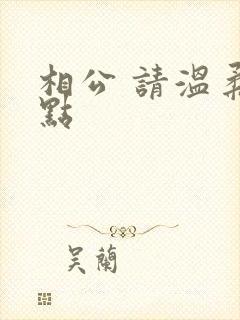 相公 請溫柔
點
吳蘭